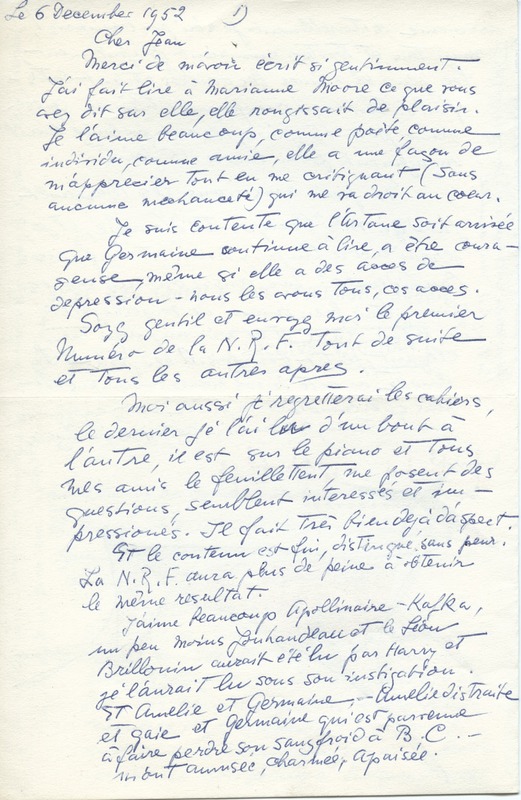 Le 6 December 1952 1)
Cher Jean
Merci de m'avoir écrit si gentiment.
J'ai fait lire à Marianne Moore ce que vous
avez dit sur elle, elle rougissait de plaisir.
Je l'aime beaucoup, comme poète, comme
individu, comme amie, elle a une façon de
m'apprecier tout en me critiquant (sans
aucune mechanceté) qui me va droit au cœur.
Je suis contente que l'Artane soit arrivée
que Germaine continue à lire, a être coura-
geuse, même si elle a des accès de
depression - nous les avons tous, ces accès.
Soyez gentil et envoyez moi le premier
Numéro de la N.R.F. tout de suite
et tous les autres apres.
Moi aussi je regretterai les cahiers,
le dernier je l'ai lu d'un bout à
l'autre, il est sur le piano et tous
mes amis le feuillettent me posent des
questions, semblent interessés et im-
pressionés. Il fait très bien dejà d'aspect.
Et le contenu est fin, distingué, sans peur.
La N.R.F. aura plus de peine à obtenir
le même resultat.
J'aime beaucoup Apollinaire - Kafka,
un peu moins Jouhandeau et le Léon
Brillouin aurait été lu par Harry et
je l'aurait lu sous son instigation.
Et Amelie et Germaine, - Amelie distraite
et gaie et Germaine qui est parvenue
à faire perdre son sang froid à B.C. -
m'ont amusée, charmée, apaisée.